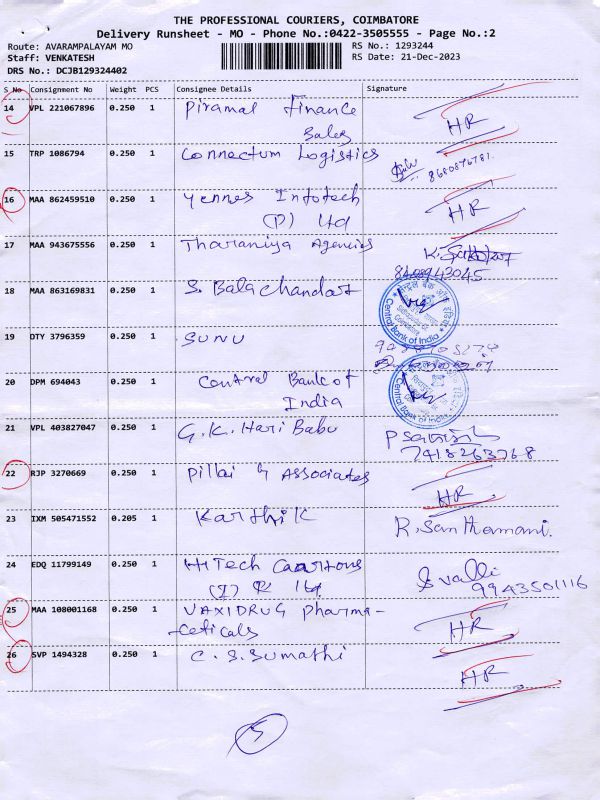 THE PROFESSIONAL COURIERS, COIMBATORE
Delivery Runsheet - MO - Phone No.:0422-3505555 - Page No.:2
Route: AVARAMPALAYAM MO RS No.: 1293244
Staff: VENKATESH RS Date: 21-Dec-2023
DRS No.: DCJB129324402
S No Consignment No Weight PCS Consignee Details Signature
14 VPL 221067896 0.250 1 Piramal Finance
Sales HR
15 TRP 1086794 0.250 1 Connectum Logistics
8680896781
16 MAA 862459510 0.250 1 Yennes Infotech
(P) Ltd HR
17 MAA 943675556 0.250 1 Tharaniya Agencies
8408943045
18 MAA 863169831 0.250 1 S. Balachandar
Central Bank of India
19 OTY 3796359 0.250 1 SUNU
20 DPM 694043 0.250 1 Central Bank of
India
Central Bank of India
21 VPL 403827047 0.250 1 G.K. Hari Babu
7418263768
22 RJP 3270669 0.250 1 Pillai & Associates
HR
23 IXM 505471552 0.205 1 Karthik R. Santhamani.
24 EDQ 11799149 0.250 1 HiTech
(I) Ltd
S valli
9943501116
25 MAA 108001168 0.250 1 VAXIDRUG Pharma-
-ceticals HR
26 SVP 1494328 0.250 1 C. S. Sumathi
HR
5